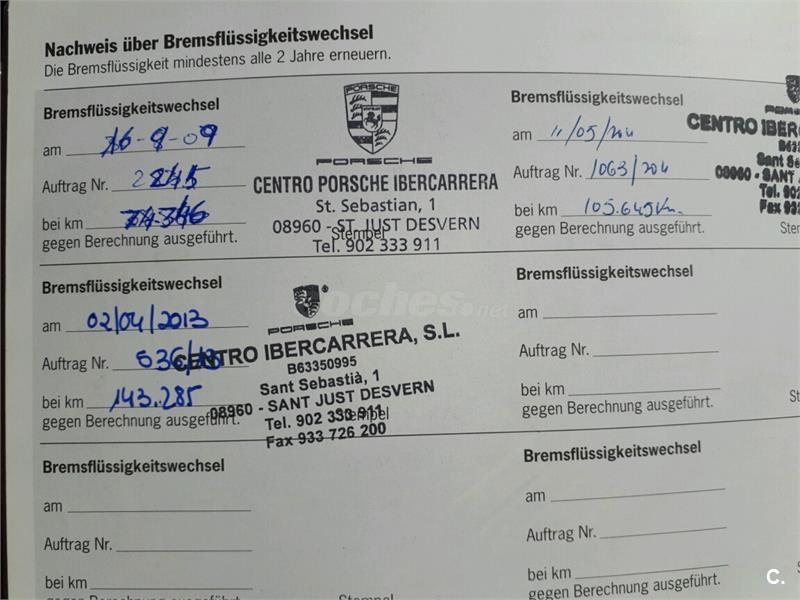 Nachweis über Bremsflüssigkeitswechsel
Die Bremsflüssigkeit mindestens alle 2 Jahre erneuern.
Bremsflüssigkeitswechsel
am 16-9-09
Auftrag Nr.
bei km
gegen Berechnung ausgeführt.
PORSCHE
PORSCHE
CENTRO PORSCHE IBERCARRERA
St. Sebastian, 1
08960 - ST. JUST DESVERN
Stempel
Tel. 902 333 911
Bremsflüssigkeitswechsel
am 11/05/201
Auftrag Nr. 1063/201
bei km 105.645 Km.
gegen Berechnung ausgeführt.
CENTRO IBER
B63
Sant Se
08960 - SANT
Tel. 902
Fax 933
Bremsflüssigkeitswechsel
am 02/04/2013
Auftrag Nr. 636/13
bei km 143.285
gegen Berechnung ausgeführt.
PORSCHE
CENTRO IBERCARRERA, S.L.
B63350995
Sant Sebastià, 1
08960 - SANT JUST DESVERN
Stempel
Tel. 902 333 911
Fax 933 726 200
coches.net
Bremsflüssigkeitswechsel
am
Auftrag Nr.
bei km
gegen Berechnung ausgeführt.
Bremsflüssigkeitswechsel
am
Auftrag Nr.
bei km
gegen Berechnung ausgeführt.
Bremsflüssigkeitswechsel
am
Auftrag Nr.
bei km
gegen Berechnung ausgeführt.
C.